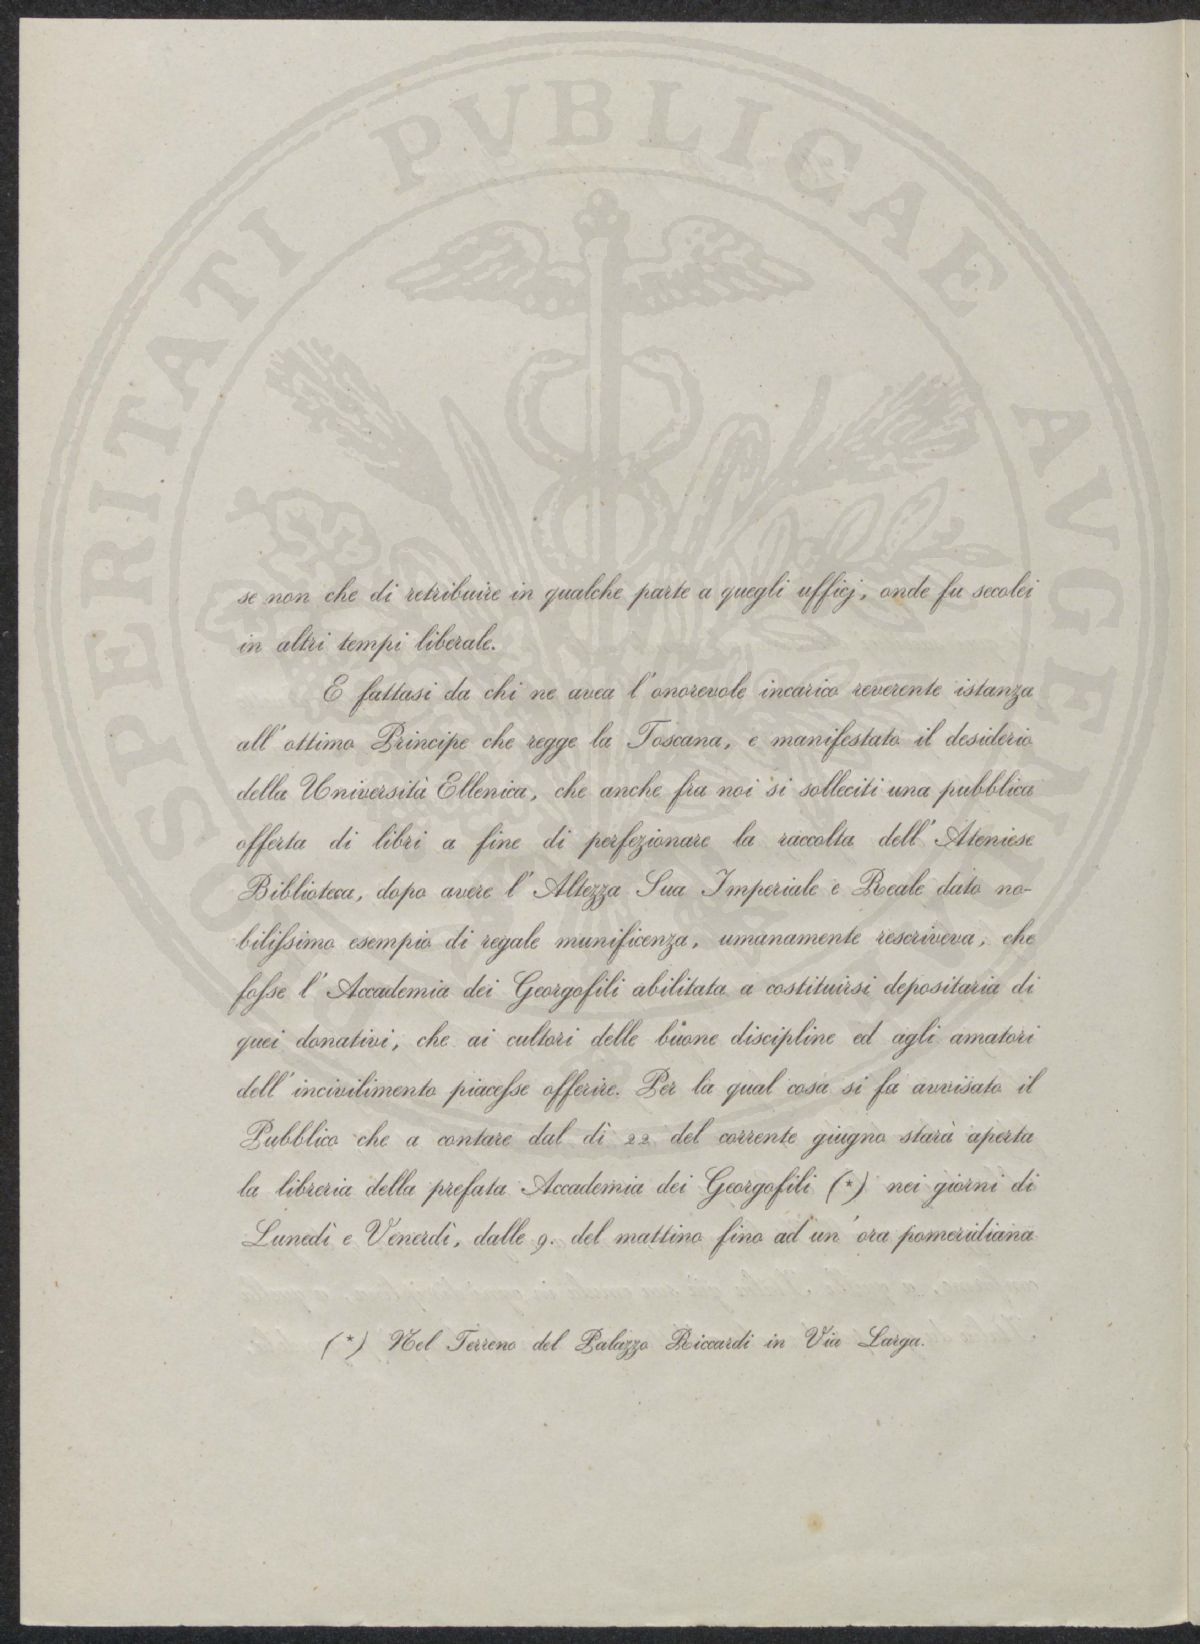 PROSPERITATI PVBLICAE AVGENDAE
se non che di retribuire in qualche parte a quegli ufficj, onde fu secolei
in altri tempi liberale.
E fattasi da chi ne avea l'onorevole incarico reverente istanza
all'ottimo Principe che regge la Toscana, e manifestato il desiderio
della Università Ellenica, che anche fra noi si solleciti una pubblica
offerta di libri a fine di perfezionare la raccolta dell'Ateniese
Biblioteca, dopo avere l'Altezza Sua Imperiale e Reale dato no-
biliſsimo esempio di regale munificenza, umanamente rescriveva, che
foſse l'Accademia dei Georgofili abilitata a costituirsi depositaria di
quei donativi, che ai cultori delle buone discipline ed agli amatori
dell'incivilimento piaceſse offerire. Per la qual cosa si fa avvisato il
Pubblico che a contare dal dì 22 del corrente giugno starà aperta
la libreria della prefata Accademia dei Georgofili (*) nei giorni di
Lunedì e Venerdì, dalle 9. del mattino fino ad un'ora pomeridiana
(*) Nel Terreno del Palazzo Riccardi in Via Larga.